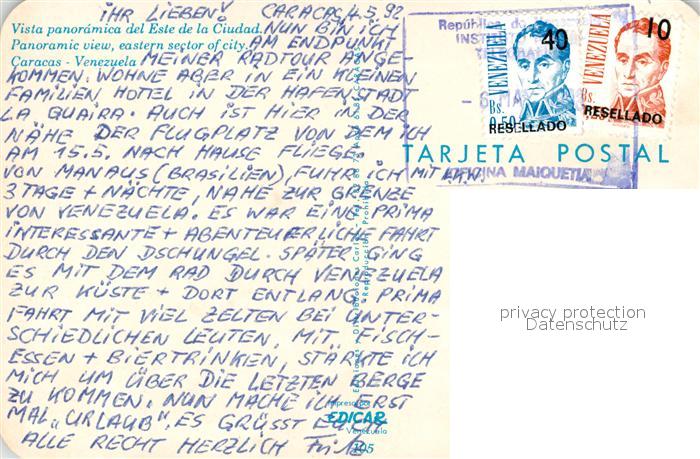 IHR LIEBEN! CARACAS, 4.5.92
Vista panorámica del Este de la Ciudad.
NUN BIN ICH
Panoramic view, eastern sector of city.
AM ENDPUNKT
Caracas - Venezuela
MEINER RADTOUR ANGE-
KOMMEN. WOHNE ABER IN EIN KLEINEN
FAMILIEN HOTEL IN DER HAFENSTADT
LA GUAIRA. AUCH IST HIER IN DER
NÄHE DER FLUGPLATZ VON DEM ICH
AM 15.5. NACH HAUSE FLIEGE.
VON MANAUS (BRASILIEN), FUHR ICH MIT LKW
3 TAGE + NÄCHTE, NAHE ZUR GRENZE
VON VENEZUELA. ES WAR EINE PRIMA
INTERESSANTE + ABENTEUERLICHE FAHRT
DURCH DEN DSCHUNGEL. SPÄTER GING
ES MIT DEM RAD DURCH VENEZUELA
ZUR KÜSTE + DORT ENTLANG. PRIMA
FAHRT MIT VIEL ZELTEN BEI UNTER-
SCHIEDLICHEN LEUTEN, MIT FISCH-
ESSEN + BIERTRINKEN, STÄRKTE ICH
MICH UM ÜBER DIE LETZTEN BERGE
ZU KOMMEN. NUN MACHE ICH ERST
MAL „URLAUB". ES GRÜSST EUCH
ALLE RECHT HERZLICH Fritz
Impreso por
EDICAR
Venezuela
105
República de
INST
OFICINA MAIQUETIA
VENEZUELA
40
Bs.
0,50
RESELLADO
VENEZUELA
10
Bs.
RESELLADO
TARJETA POSTAL
privacy protection
Datenschutz